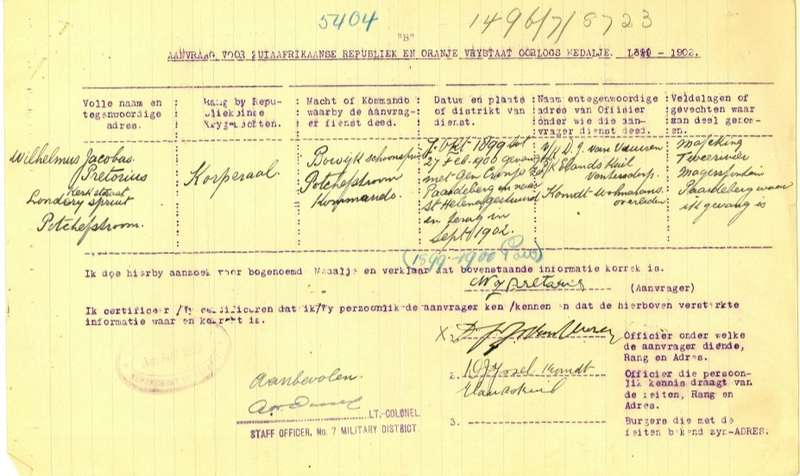 5404
1496/7/8723
"B"
AANVRAAG VOOR ZUIAAFRIKAANSE REPUBLIEK EN ORANJE VRYSTAAT OORLOGS MEDALJE. 1899 - 1902.
Volle naam en
tegenwoordige
adres.
Rang by Repu-
bliekeinse
Krygsmachten.
Macht of Kommando
waarby de aanvrag-
er dienst deed.
Datum en plaats
of distrikt van
dienst.
Naam en tegenwoordige
adres van Offisier
onder wie die aan-
vrager dienst deed.
Veldslagen of
gevechten waar
aan deel geno-
men.
Wilhelmus Jacobus
Pretorius
Kerkstraat
Potchefstroom.
Korporaal.
Potchefstroom
Kommando.
7 Okt 1899 tot
27 Feb. 1900 gevangen
met Gen Cronje
Paardeberg en naar
St Helena gestuurd
en terug in
Sept 1902.
D. J. van Vuuren
Elands Kuil
Ventersdorp.
Komdt Wolmarans
overleden.
Mafeking
Tweerivier
Magersfontein
Paardeberg waar
ek gevang is
(1899-1900 Paris)
Ik doe hierby aanzoek voor bogenoemd Medalje en verklaar dat bovenstaande informatie korrek is.
W J Pretorius
(Aanvrager)
Ik certificeer /Wy certificeren dat ik/wy persoonlik de aanvrager ken /kennen en dat de hierboven versterkte
informatie waar en korrekt is.
X 1.
Officier onder welke
de aanvrager diende,
Rang en Adres.
2.
Komdt
Elandskuil
Officier die persoon-
lik kennis draagt van
de feiten, Rang en
Adres.
3.
Burgers die met de
feiten bekend zyn-ADRES.
Aanbevolen.
LT.-COLONEL
STAFF OFFICER, No. 7 MILITARY DISTRICT.